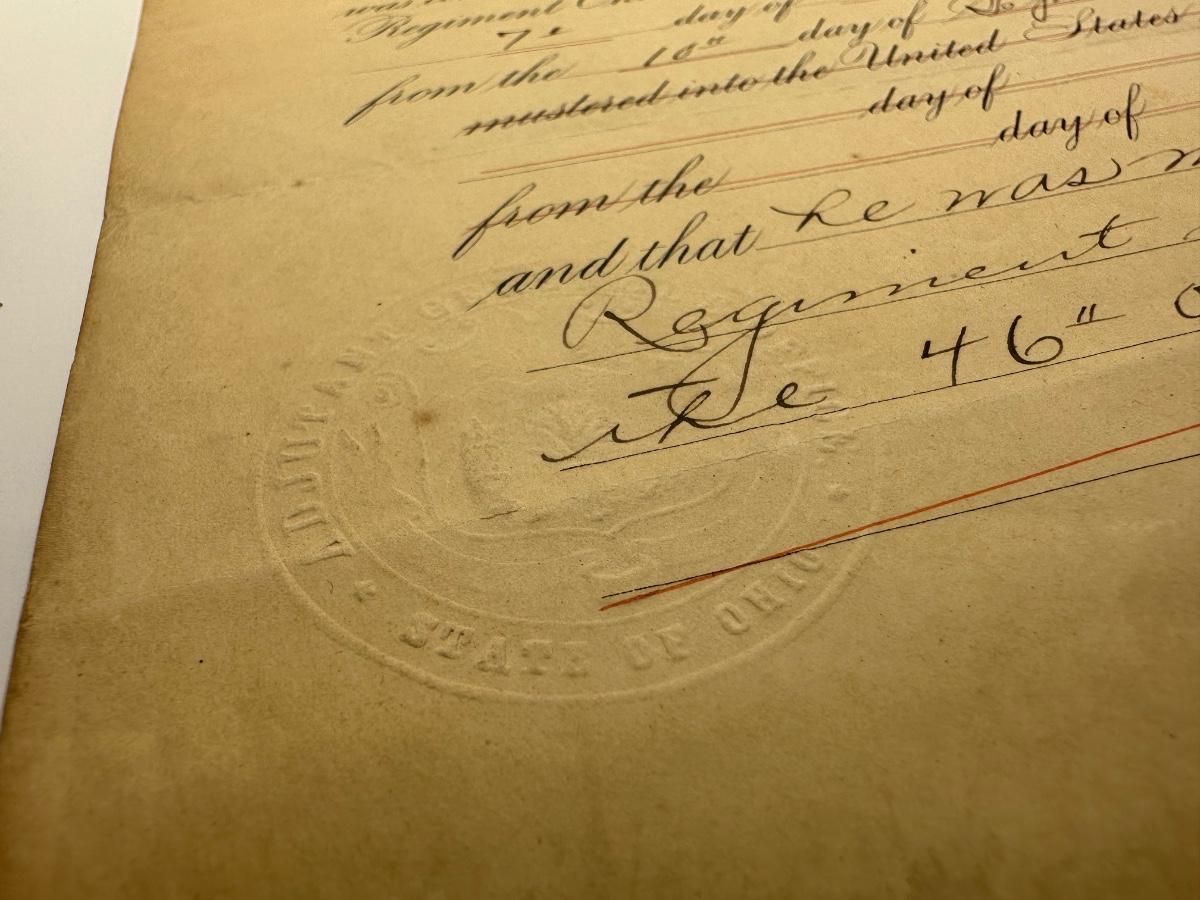 Regiment
7th day of
from the 10th day of
mustered into the United States
day of
from the day of
and that he was
Regiment
the 46"
ADJUTANT GENERAL
STATE OF OHIO